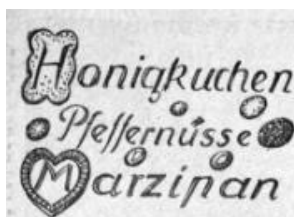 Honigkuchen
Pfeffernüsse
Marzipan